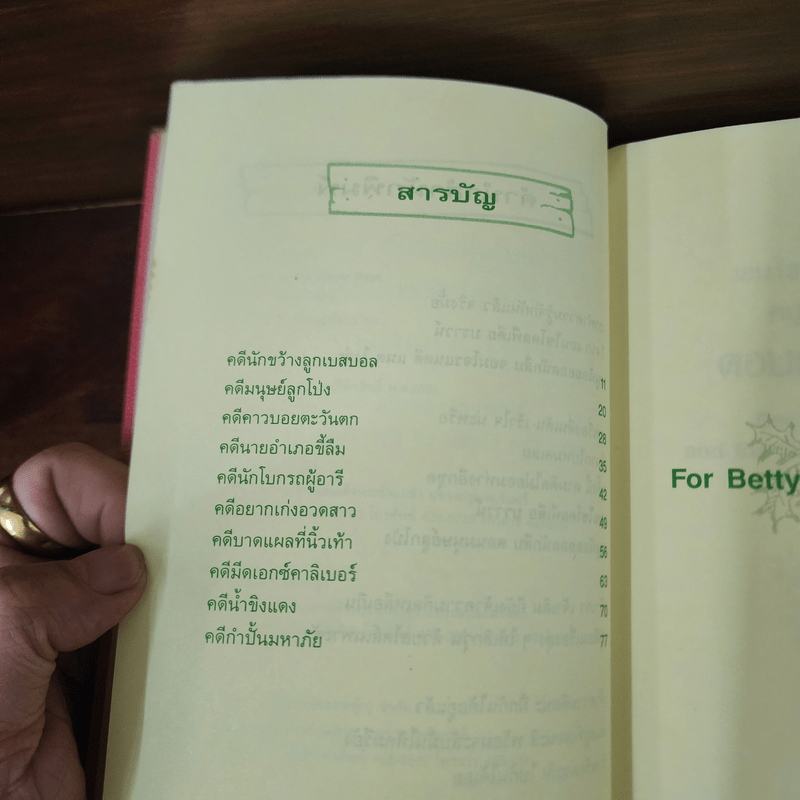 สารบัญ
คดีนักขว้างลูกเบสบอล 11
คดีมนุษย์ลูกโป่ง 20
คดีคาวบอยตะวันตก 28
คดีนายอำเภอขี้ลืม 35
คดีนักโบกรถผู้อารี 42
คดีอยากเก่งอวดสาว 49
คดีบาดแผลที่นิ้วเท้า 56
คดีมีดเอกซ์คาลิเบอร์ 63
คดีน้ำขิงแดง 70
คดีกำปั้นมหาภัย 77
For Betty